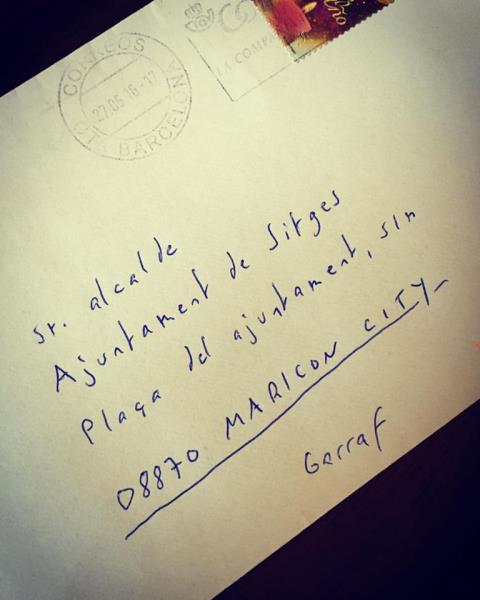 CORREOS
27.05 16-17
CTA BARCELONA
LA COMPA
Sr. alcalde
Ajuntament de Sitges
Plaça del ajuntament, s/n
08870 MARICON CITY
Garraf